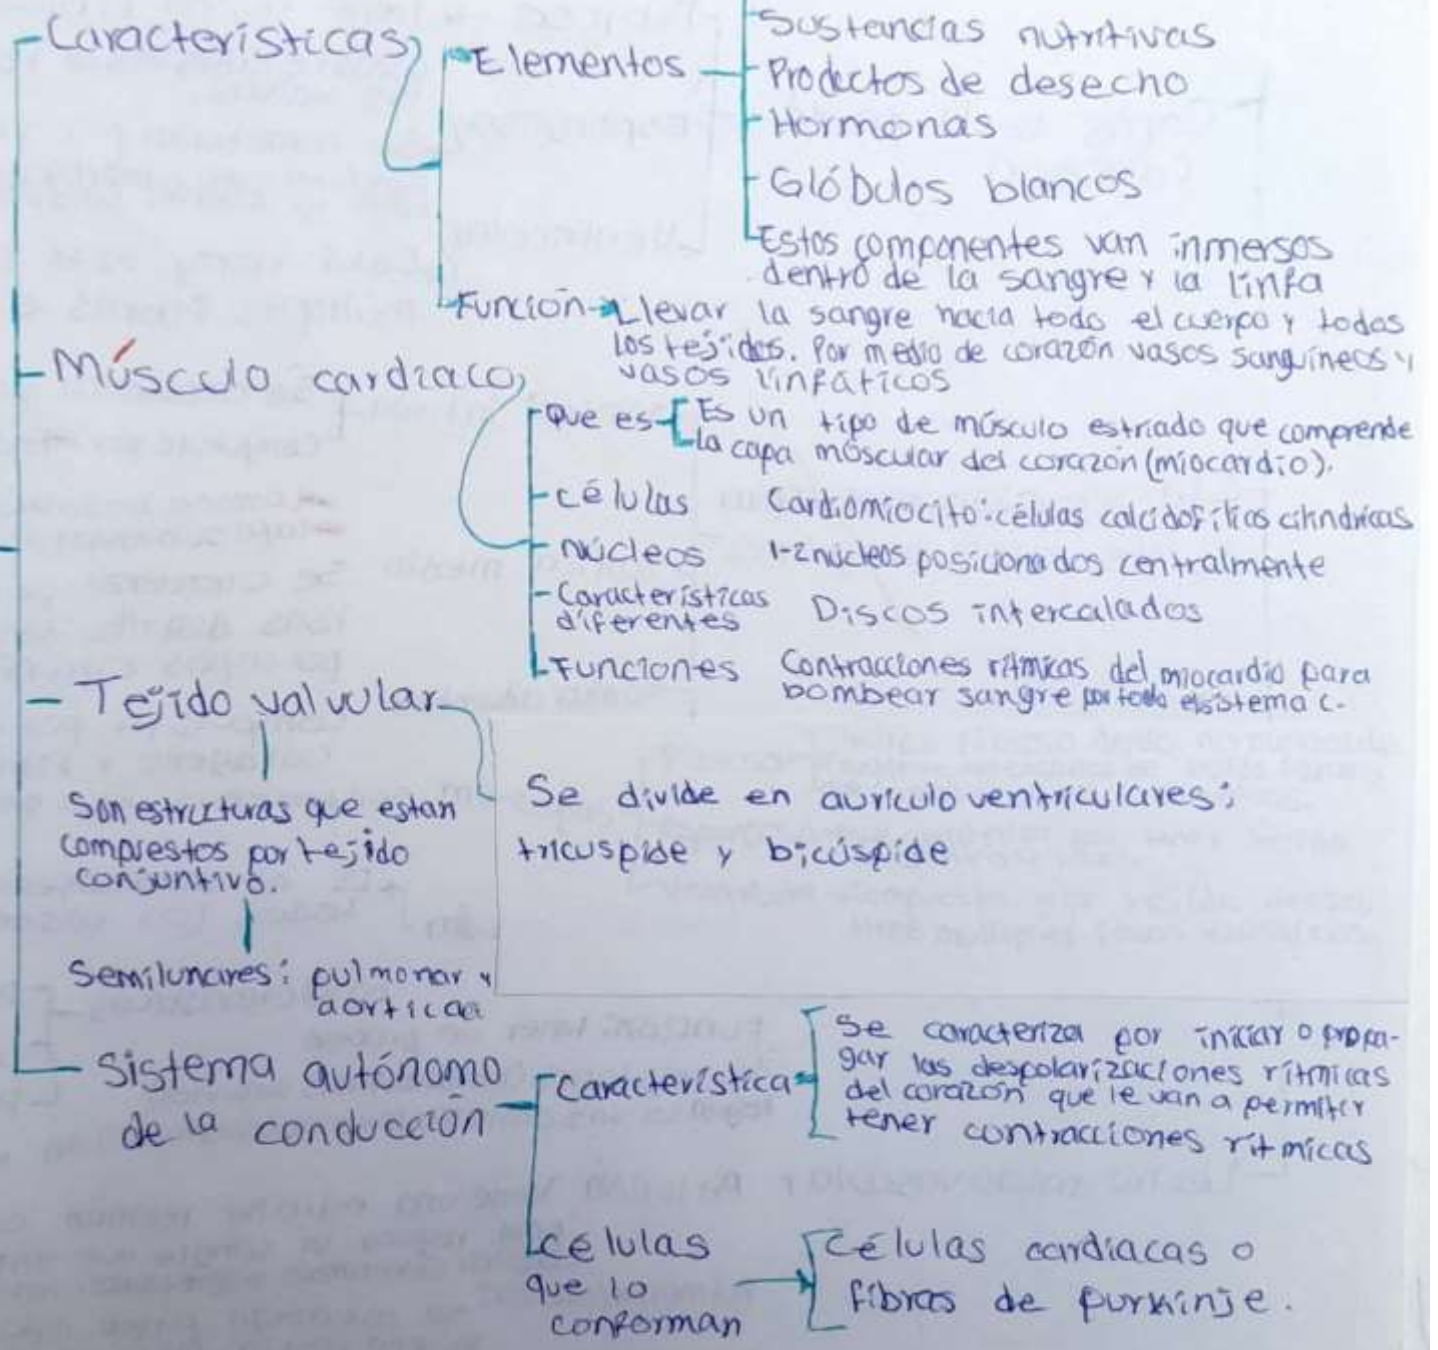 Características
Elementos
Sustancias nutritivas
Productos de desecho
Hormonas
Glóbulos blancos
Estos componentes van inmersos
dentro de la sangre y la linfa
Función
Llevar la sangre hacia todo el cuerpo y todos
los tejidos. Por medio de corazón vasos sanguíneos y
vasos linfáticos
Músculo cardiaco
Que es
Es un tipo de músculo estriado que comprende
la capa múscular del corazón (miocardio).
Células
Cardiomiocito: células calcidofílicas cilindricas
Núcleos
1-2 núcleos posicionados centralmente
Características
diferentes
Discos intercalados
Funciones
Contracciones rítmicas del miocardio para
bombear sangre por todo el sistema c.
Tejido valvular
Son estructuras que estan
compuestos por tejido
conjuntivo.
Semilunares: pulmonar y
aortica
Se divide en aurículo ventriculares:
tricuspide y bicúspide
Sistema autónomo
de la conducción
Característica
Se caracteriza por iniciar o propa-
gar las despolarizaciones rítmicas
del corazón que le van a permitir
tener contracciones rítmicas
Células
que lo
conforman
Células cardiacas o
fibras de purkinje.